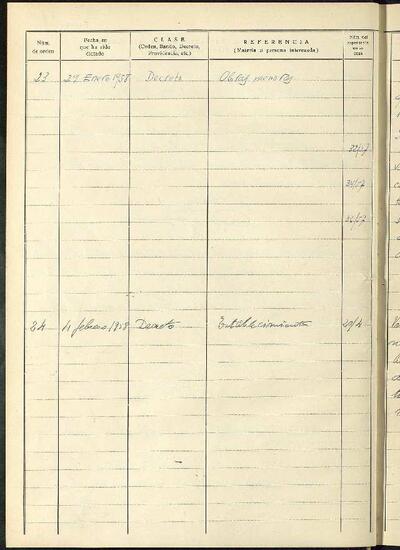 Núm. de orden
Fecha en que ha sido dictado
CLASE
(Orden, Bando, Decreto, Providencia, etc.)
REFERENCIA
(Materia o persona interesada)
Núm. del expediente
23 27 Enero 1958 Decreto Obras menores
32/57
34/57
24 4 febrero 1958 Decreto Establecimientos